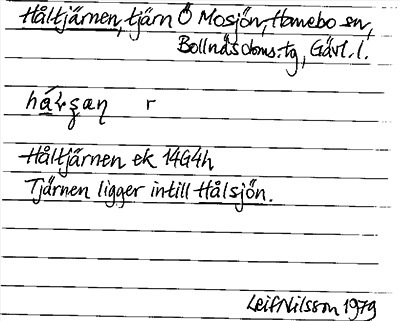 Håltjärnen, tjärn Ö Mosjön, Hanebo sn,
Bollnäs doms:tg, Gävl. l.
r
Håltjärnen ek 14G4h
Tjärnen ligger intill Hålsjön.
Leif Nilsson 1979